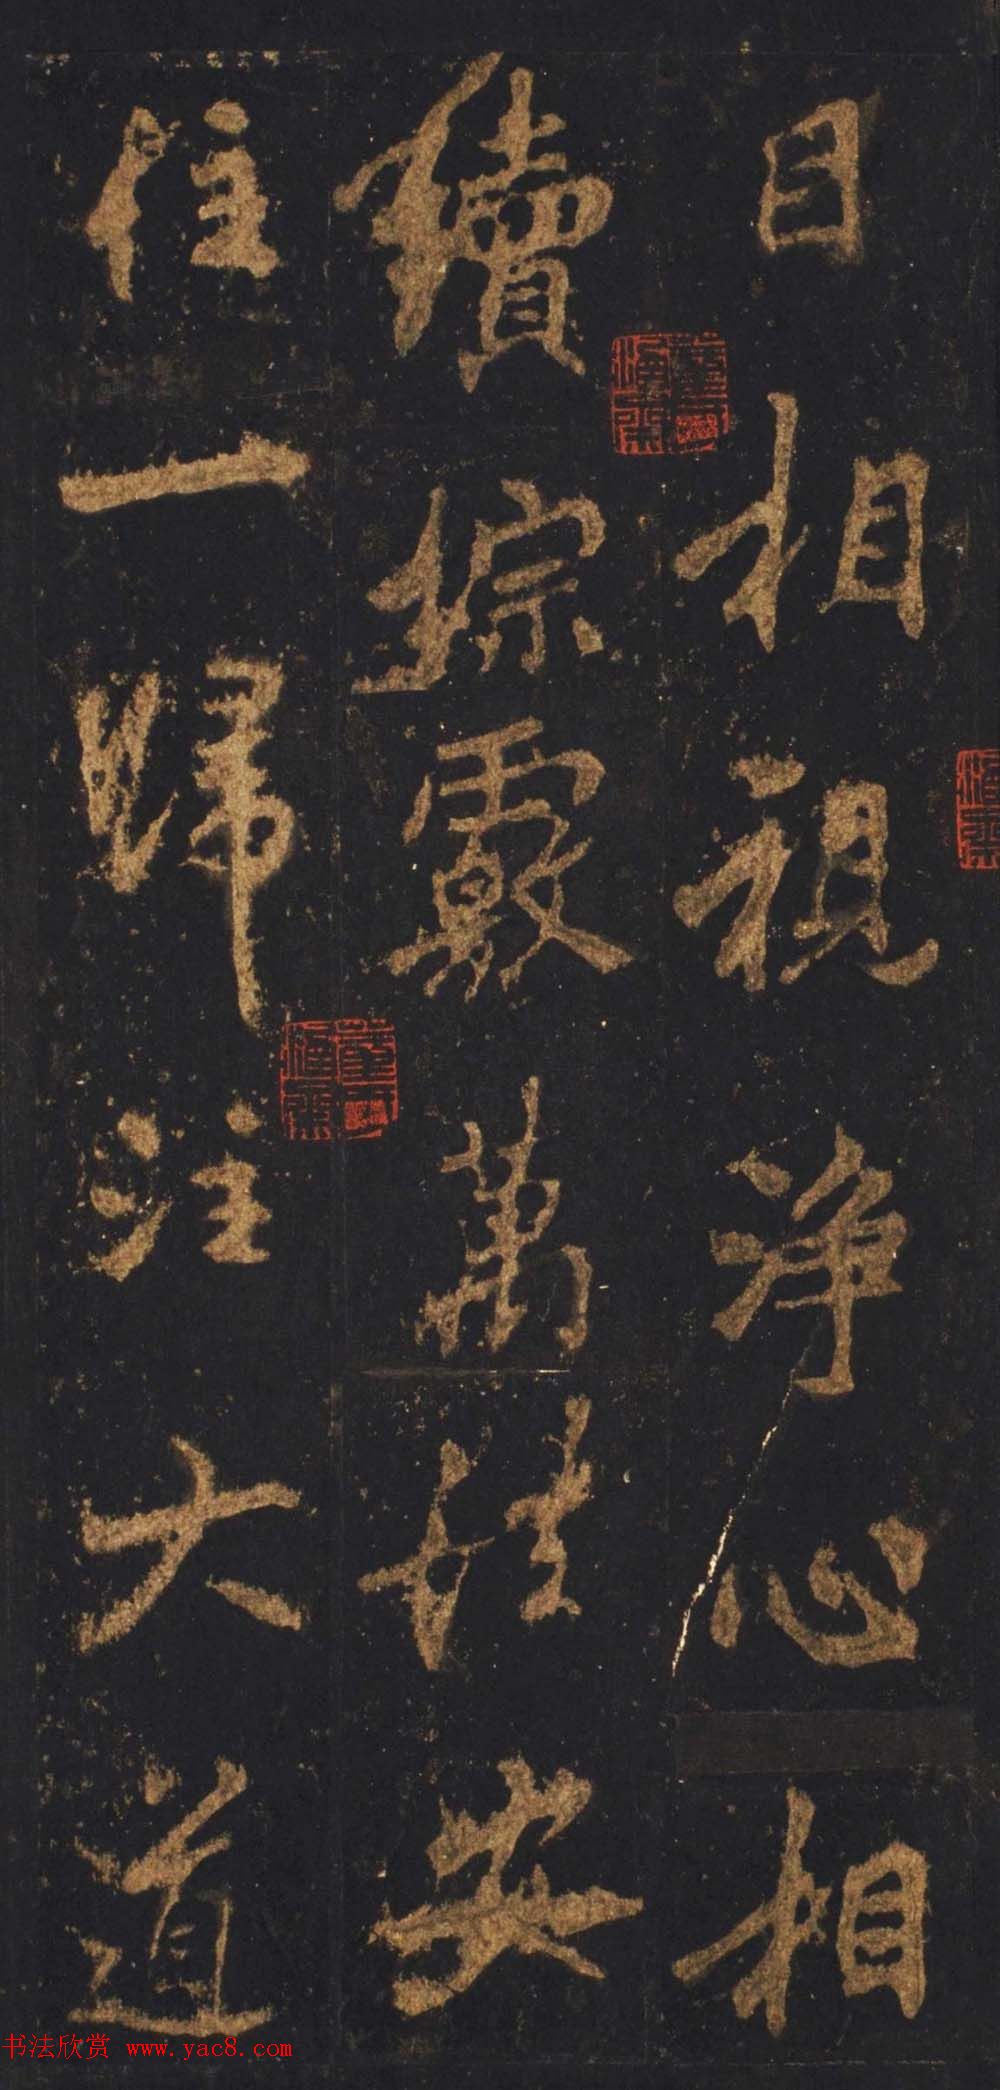 目相視淨心相
續綜覈萬法安
住一歸注大道
书法欣赏 www.yac8.com